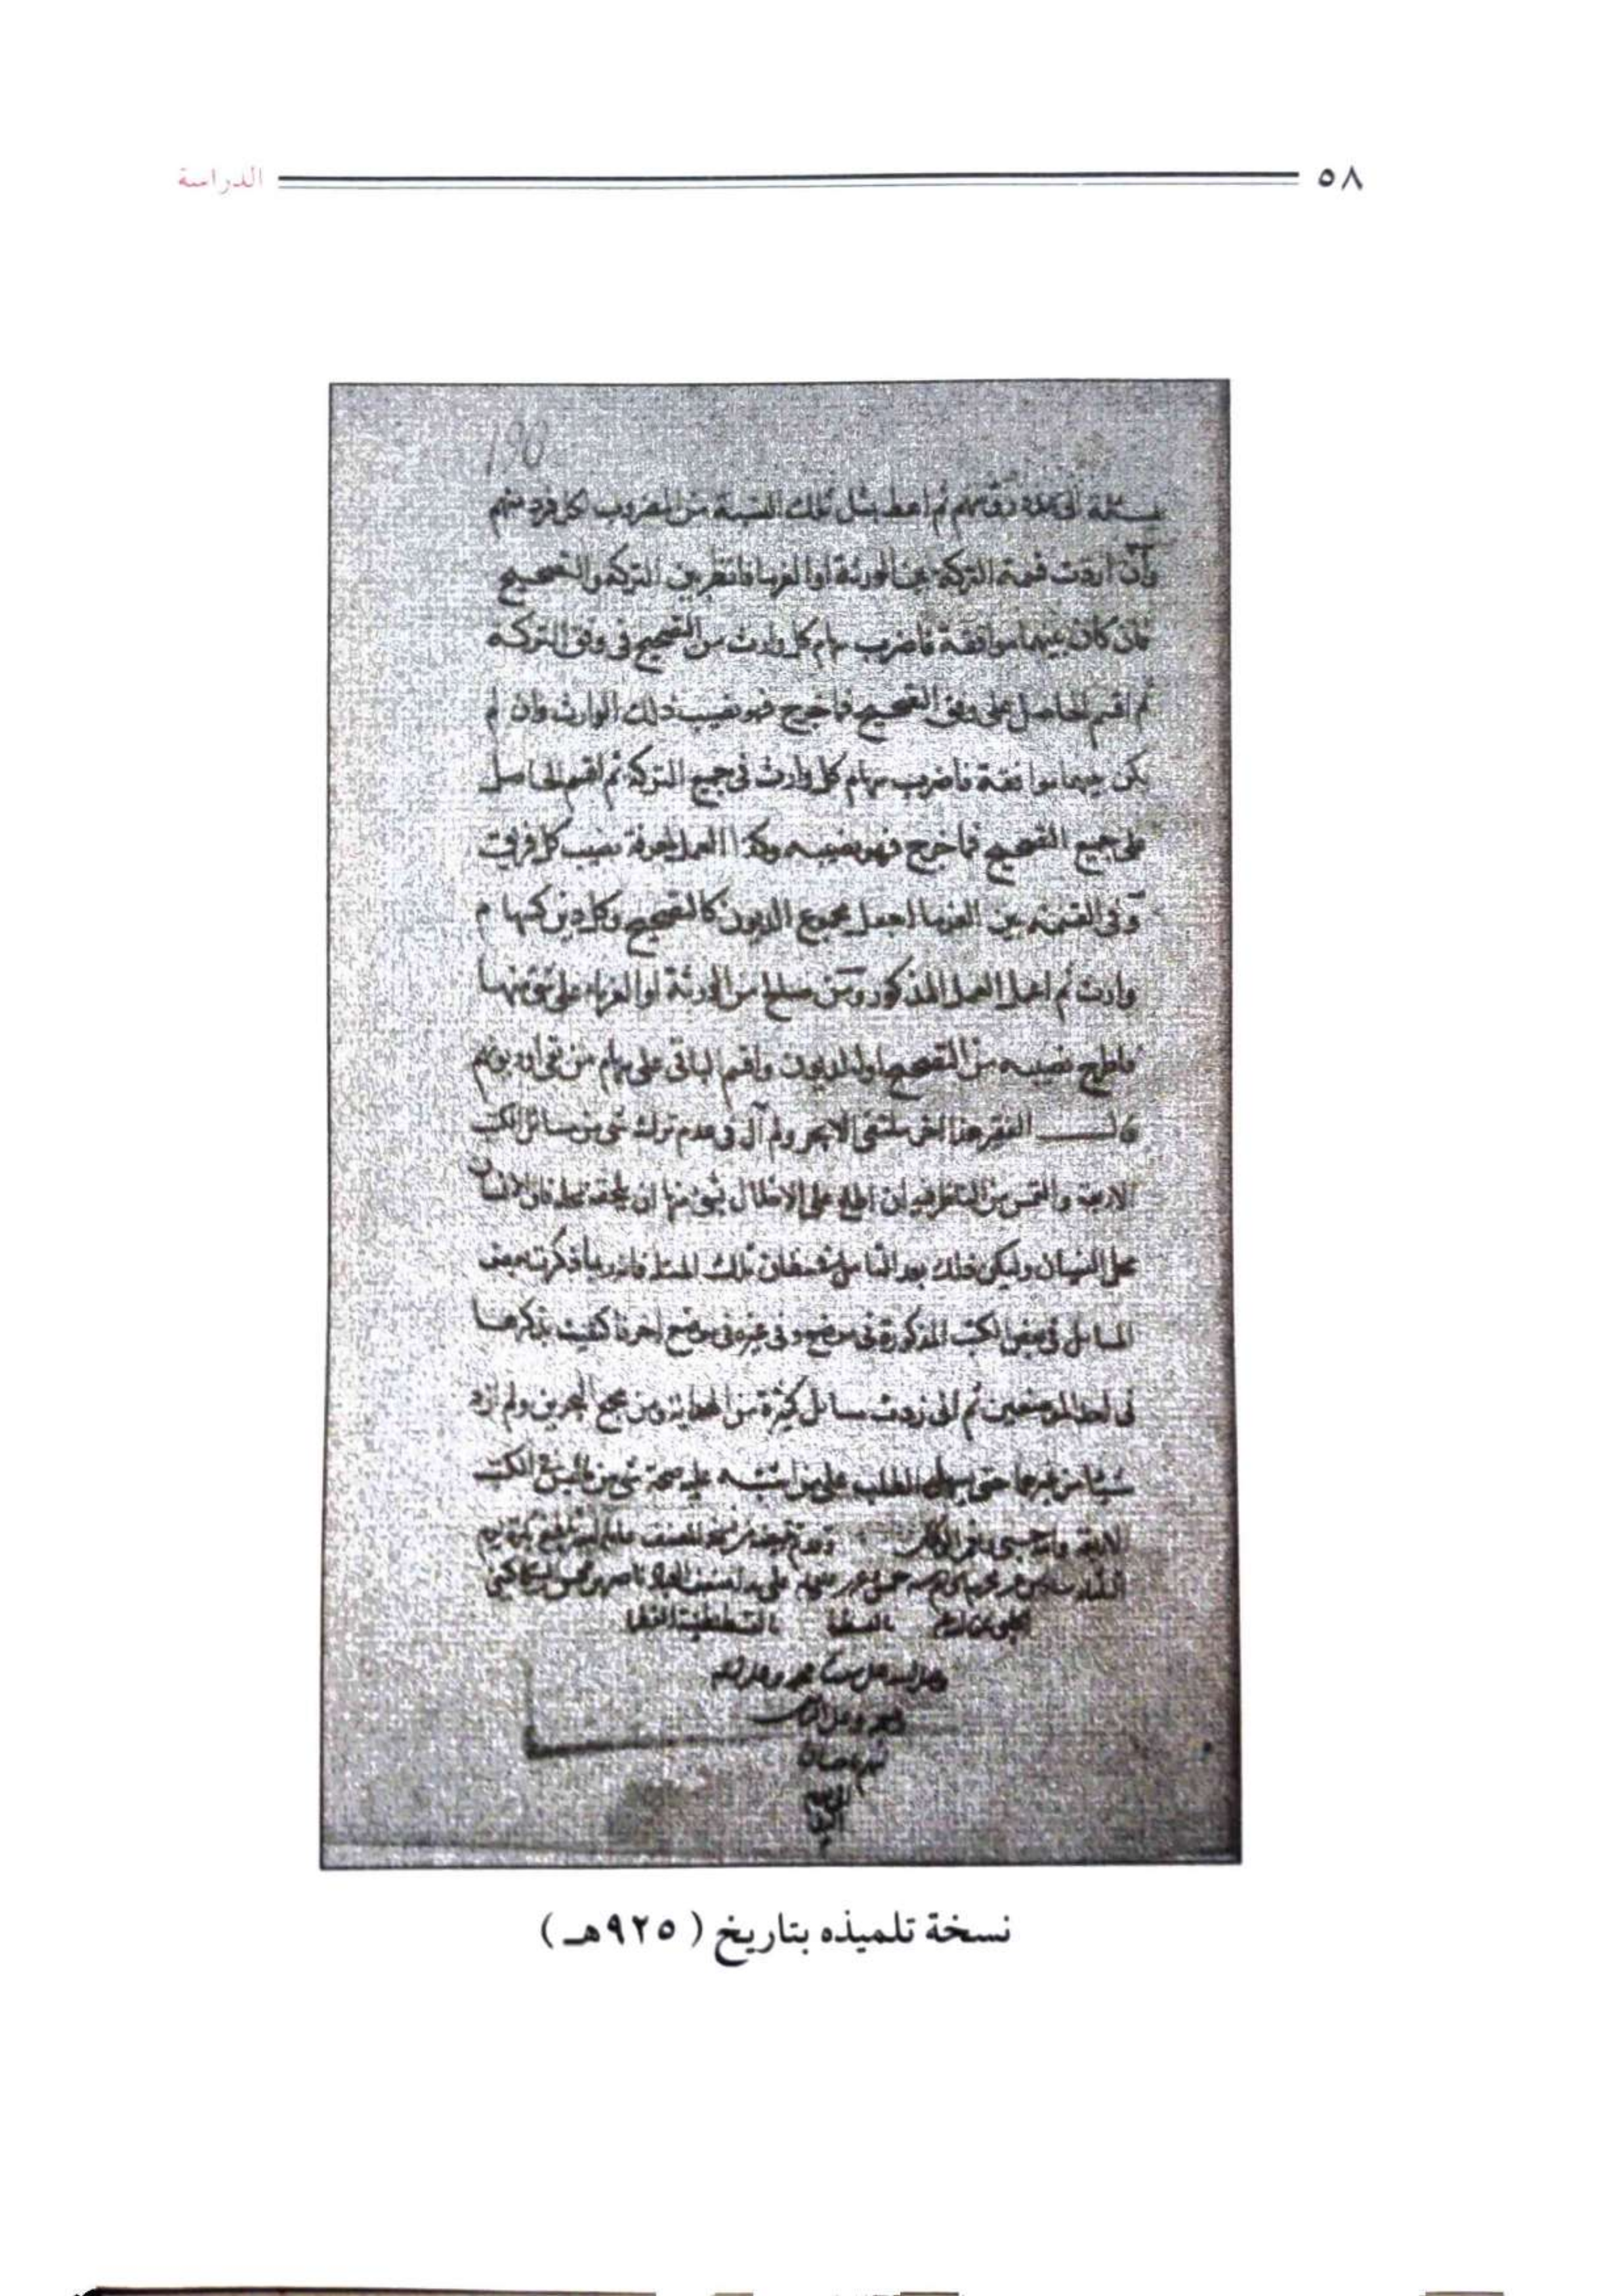 ٥٨
الدراسة
190
مسئلة الى عدد رؤسهم ثم اعط بمثل تلك النسبة من المضروب لكل فرد منهم
وان اردت قسمة التركة بين الورثة او الغرما فانظر بين التركة والتصحيح
فان كان بينهما موافقة فاضرب سهام كل وارث من التصحيح فى وفق التركة
ثم اقسم الحاصل على وفق التصحيح فما خرج فهو نصيب ذلك الوارث وان لم
يكن بينهما موافقة فاضرب سهام كل وارث فى جميع التركة ثم اقسم الحاصل
على جميع التصحيح فما خرج فهو نصيبه وكذا العمل لمعرفة نصيب كل فريق
وفى القسمة بين الغرما اجعل مجموع الديون كالتصحيح وكل دين كسهام
وارث ثم اعمل العمل المذكور ومن صالح من الورثة او الغرماء على شئ منها
فاطرح نصيبه من التصحيح او الديون واقسم الباقى على سهام من بقى او ديونهم
قال الفقير هذا اخر ملتقى الابحر ولم آل فى عدم ترك شئ من مسائل الكتب
الاربعة والتمس من الناظر فيه ان اطلع على الاخلال بشئ منها ان يلحقه بمحله فان الانسان
محل النسيان وليكن ذلك بعد التأمل فى مظان تلك المسئلة فانه ربما ذكرت بعض
المسائل فى بعض الكتب المذكورة فى موضع وفى غيره فى موضع اخر فاكتفيت بذكرها
فى احد الموضعين ثم انى زدت مسائل كثيرة من الهداية ومن مجمع البحرين ولم ازد
شيئا من غيرهما حتى يسهل الطلب على من اشتبه عليه صحة شئ مما ليس فى الكتب
الاربعة والله حسبى ونعم الوكيل
نسخة تلميذه بتاريخ ( ٩٢٥هـ )